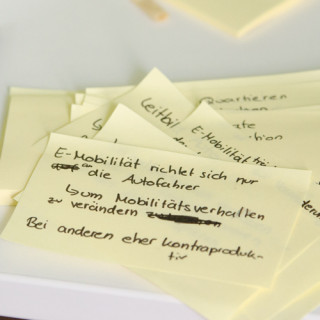 Quartieren
Leitbil
E-Mobilität
E-Mobilität richtet sich nur
die Autofahrer
↳ um Mobilitätsverhalten
zu verändern
Bei anderen eher kontraproduk-
tiv